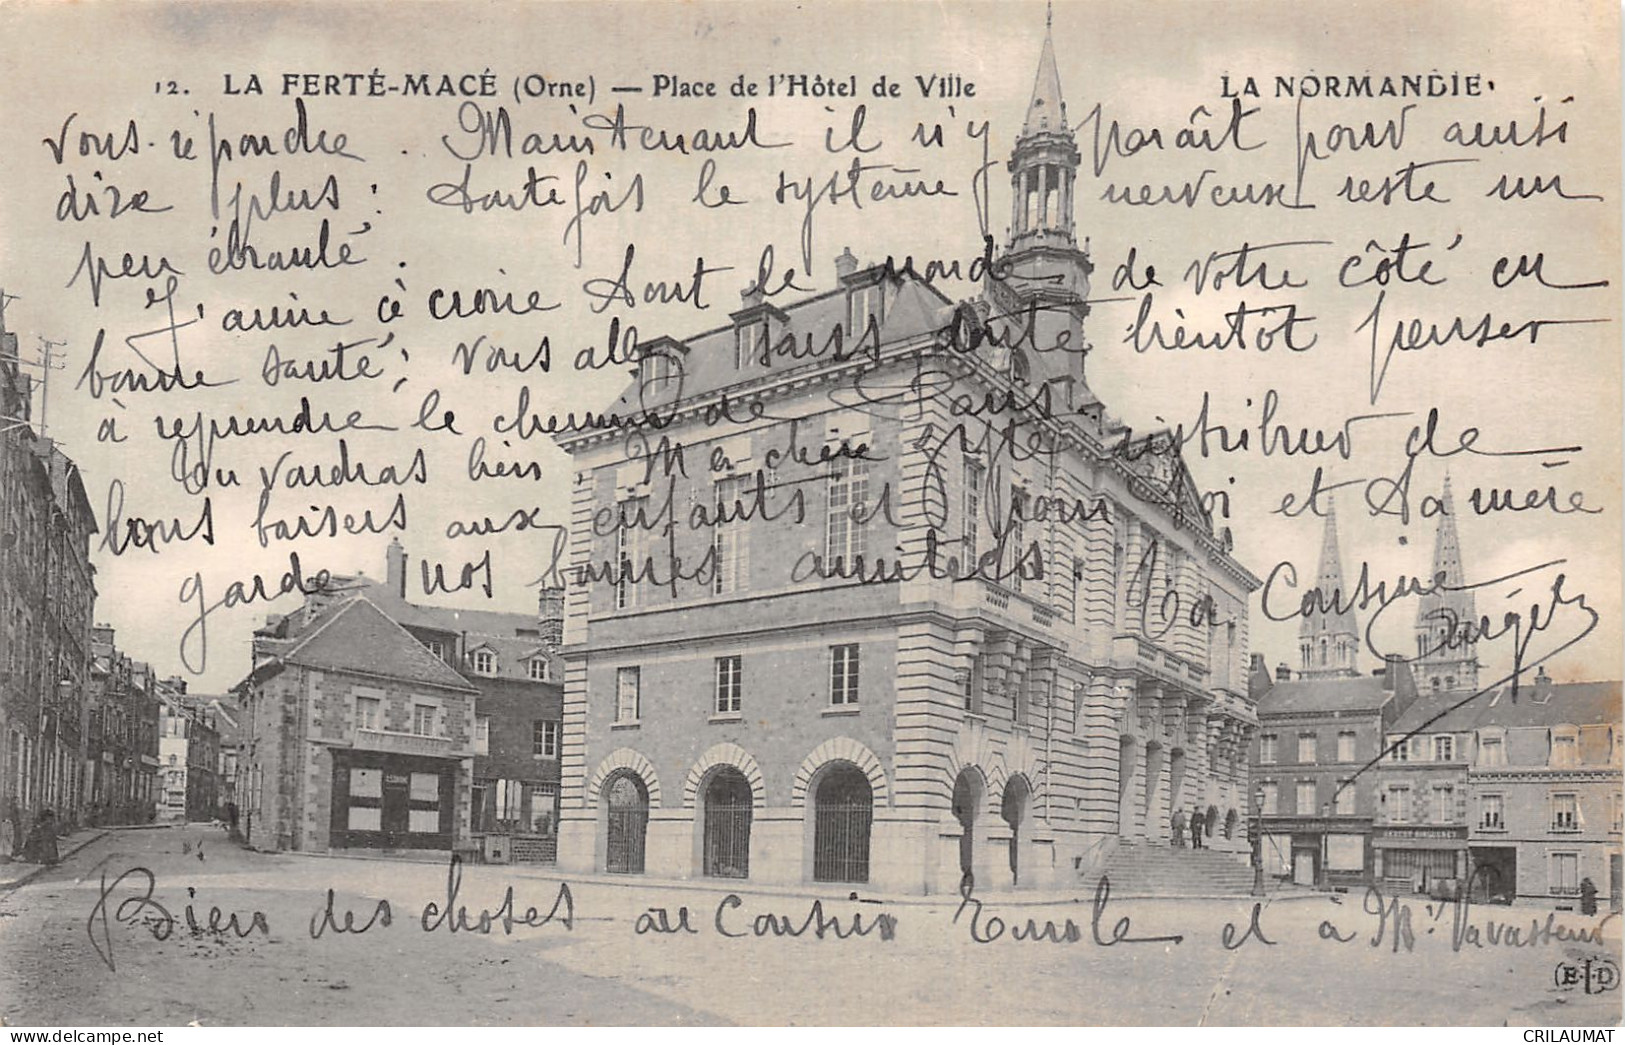 12. LA FERTÉ-MACÉ (Orne) — Place de l'Hôtel de Ville
LA NORMANDIE.
vous répondre. Maintenant il n'y paraît pour ainsi
dire plus; toutefois le système nerveux reste un
peu ébranlé.
J'aime à croire tout le monde de votre côté en
bonne santé; vous allez sans doute bientôt penser
à reprendre le chemin de Paris.
Tu voudras bien Ma chère distribuer de
bons baisers aux enfants et pour toi et ta mère
garde nos bonnes amitiés Ta Cousine
Bien des choses au Cousin Emile et à Mr Vavasseur
E.L.D
CRILAUMAT